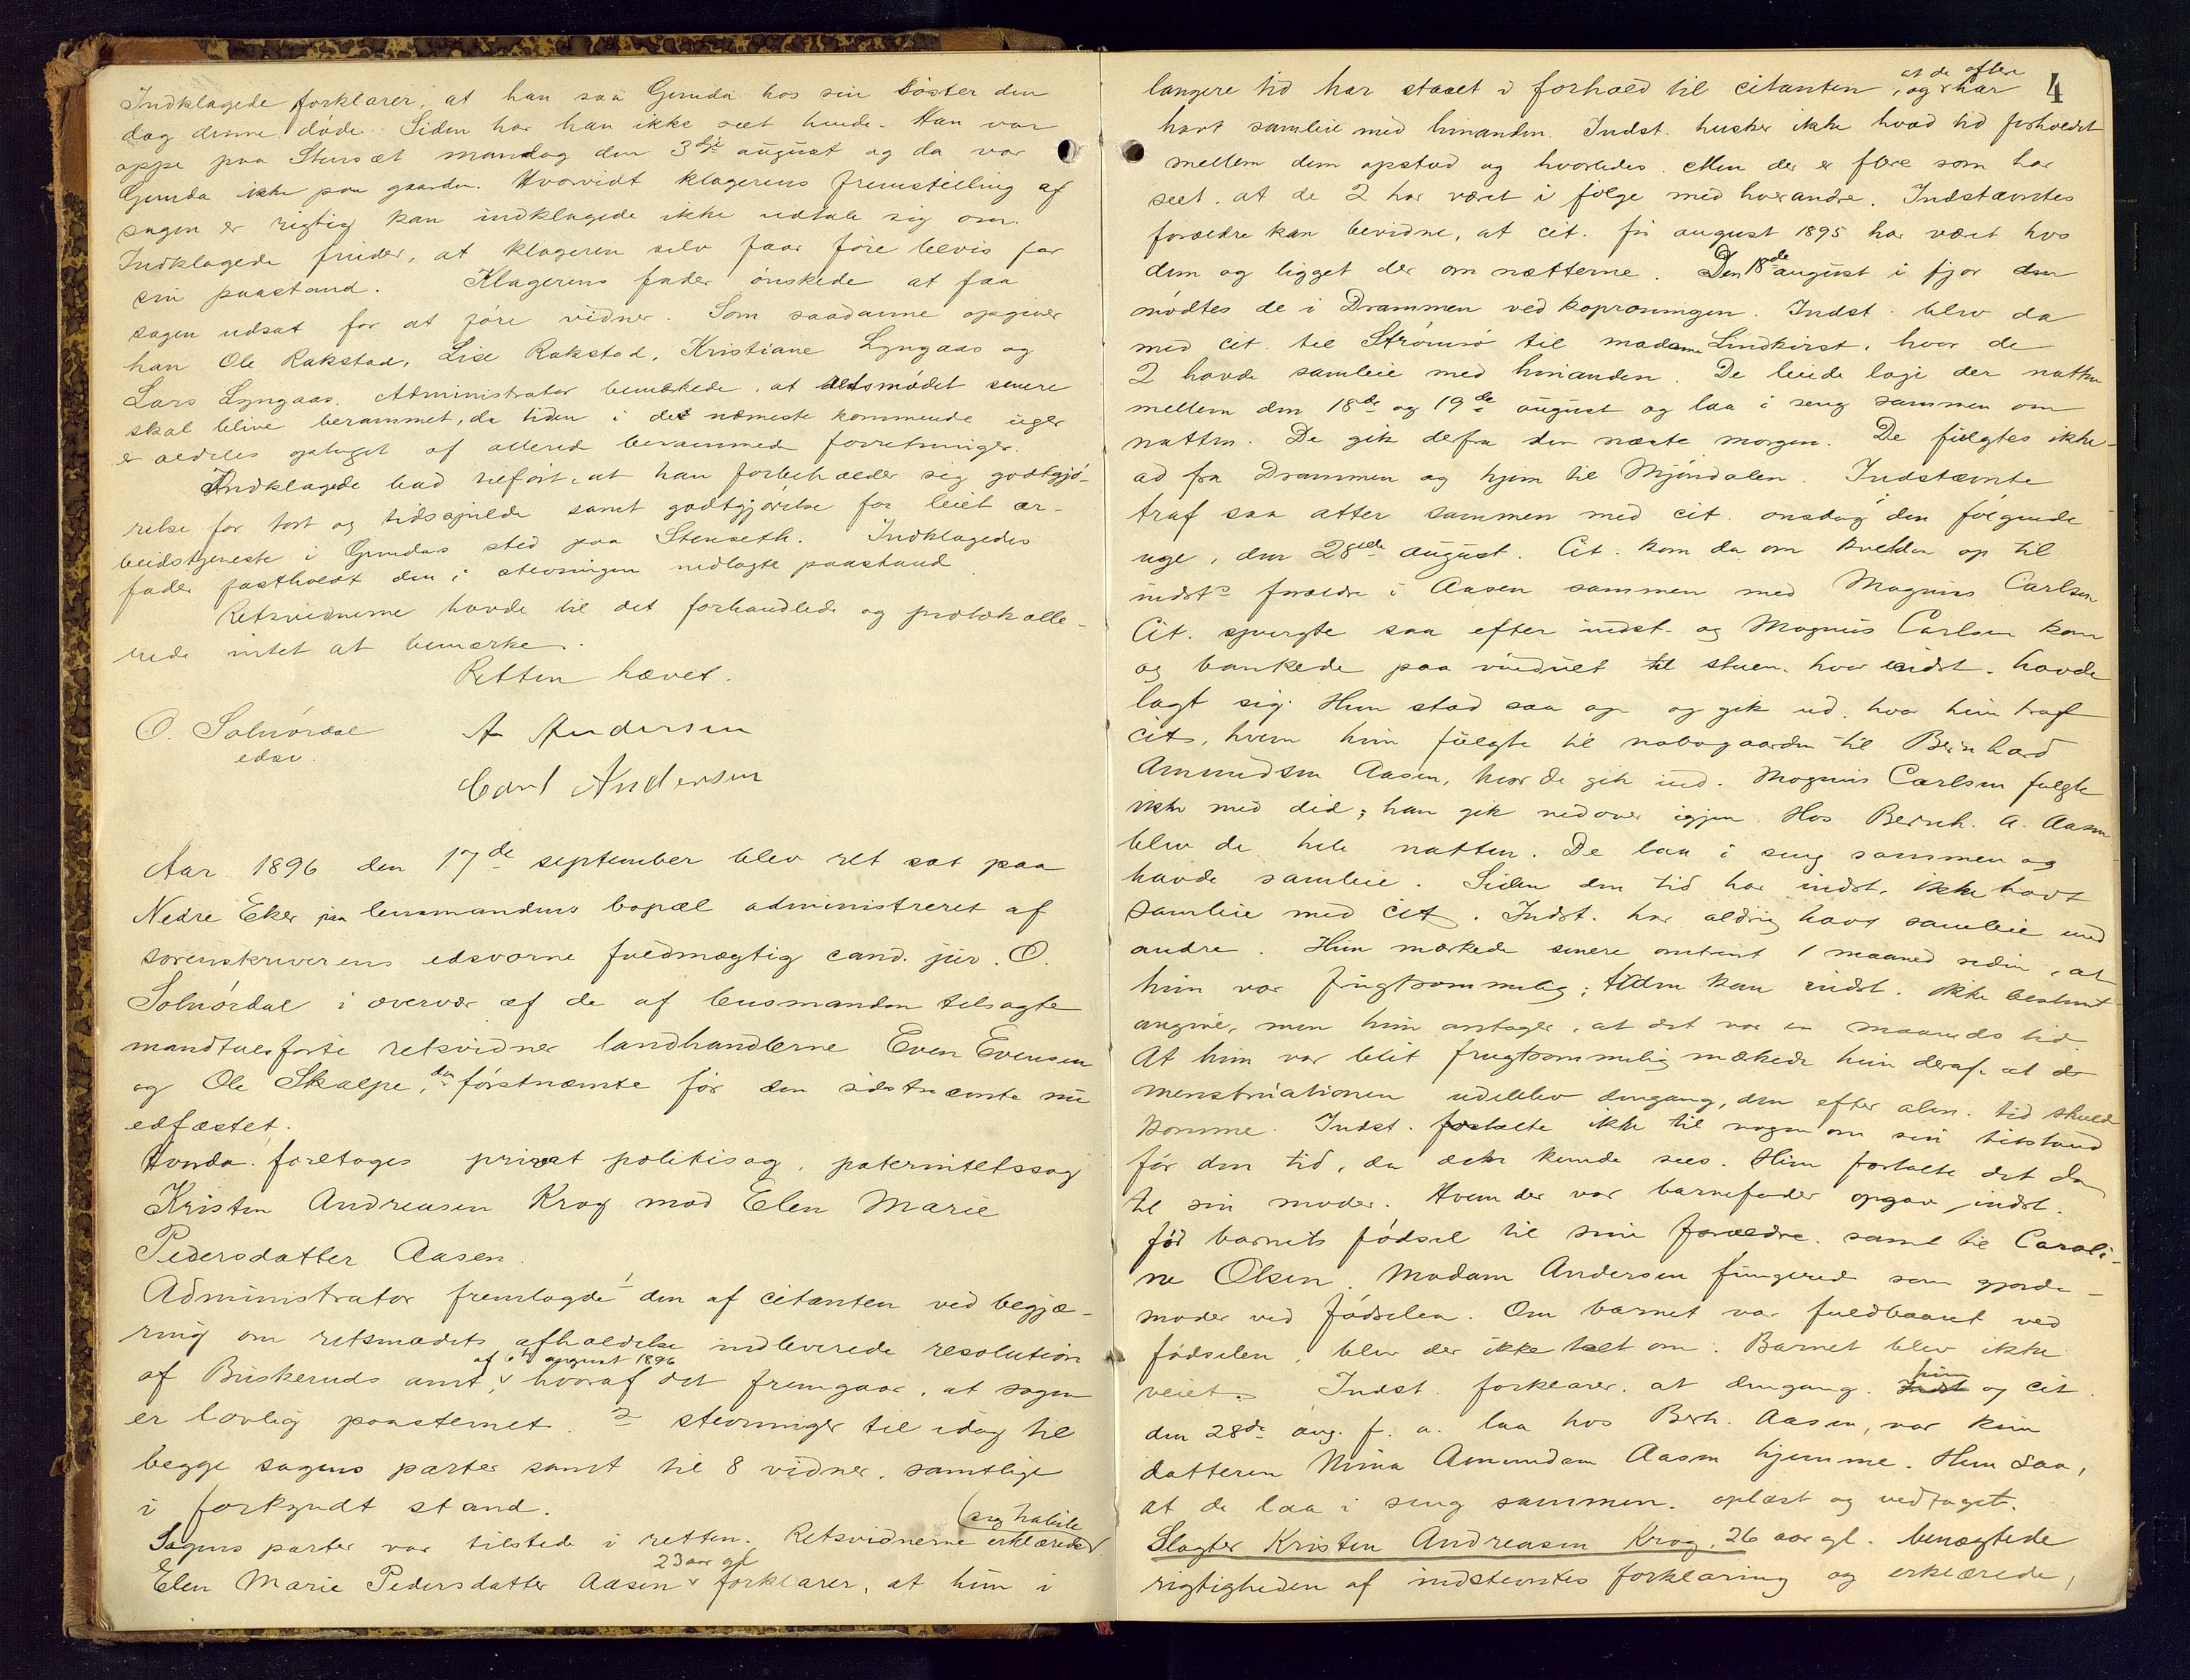 Indklagede forklarer, at han saa Gunda hos sin Söster den
dag denne döde. Siden har han ikke seet hende. Han var
oppe paa Stenset mandag den 3die august og da var
Gunda ikke paa gaarden. Hvorvidt klagerens fremstilling af
sagen er rigtig kan indklagede ikke udtale sig om.
Indklagede finder, at klageren selv faar före bevis for
sin paastand. Klagerens fader önskede at faa
sagen udsat for at före vidner. Som saadanne opgiver
han Ole Rakstad, Lise Rakstad, Kristiane Lyngaas og
Lars Lyngaas. Administrator bemærkede, at retsmödet senere
skal blive berammet, da tiden i de nærmeste kommende uger
er aldeles optaget af allerede berammede forretninger.
Indklagede bad tilført, at han forbeholder sig godtgjö-
relse for tort og tidsspilde samt godtgjörelse for leiet ar-
beidstjeneste i Gundas sted paa Stenseth. Indklagedes
fader fastholdt den i stevningen nedlagte paastand.
Retsvidnerne havde til det forhandlede og protokolle-
rede intet at bemærke.
Retten hævet.
O. Solnördal A Andersen
edsv.
Carl Andersen
Aar 1896 den 17de september blev ret sat paa
Nedre Eker paa lensmandens bopæl administreret af
sorenskriverens edsvorne fuldmægtig cand. jur. O.
Solnördal i overvær af de af lensmanden tilsagte
mandtalsförte retsvidner landhandlerne Even Evensen
og Ole Skalpe, den förstnævnte før den sidstnævnte nu
edfæstet.
Hvorda foretoges privat politisag, paternitetssag
Kristen Andreasen Krog mod Elen Marie
Pedersdatter Aasen.
Administrator fremlagde 1 den af citanten ved begjæ-
ring om retsmødets afholdelse indleverede resolution
af Buskeruds amt, af 6te august 1896 hvoraf det fremgaar, at sagen
er lovlig paastemet. 2 stevninger til idag til
begge sagens parter samt til 8 vidner, samtlige
i forkyndt stand.
Sagens parter var tilstede i retten. Retsvidnerne erklærede sig habile
Elen Marie Pedersdatter Aasen 23 aar gl forklarer, at hun i
4
længere tid har staaet i forhold til citanten, og at de oftere har
havt samleie med hinanden. Indst. husker ikke hvad tid forholdet
mellem dem opstod og hvorledes. Men der er flere som har
seet, at de 2 har været i følge med hverandre. Indstævntes
forældre kan bevidne, at cit. för august 1895 har været hos
dem og ligget der om nætterne. Den 18de august i fjor den
mödtes de i Drammen ved kaproningen. Indst. blev da
med cit. til Strömsö til madame Lindkvist, hvor de
2 havde samleie med hinanden. De leiede logi der natten
mellem den 18de og 19de august og laa i seng sammen om
natten. De gik derfra den næste morgen. De fulgtes ikke
ad fra Drammen og hjem til Mjöndalen. Indstævnte
traf saa atter sammen med cit. onsdag den fölgende
uge, den 28de august. Cit. kom da om kvelden op til
indst's forældre i Aasen sammen med Magnus Carlsen
Cit. spurgte saa efter indst. og Magnus Carlsen kom
og bankede paa vinduet til stuen, hvor indst. havde
lagt sig. Hun stod saa op og gik ud, hvor hun traf
cit., hvem hun fulgte til nabogaarden til Bernhard
Amundsen Aasen, hvor de gik ind. Magnus Carlsen fulgte
ikke med did; han gik nedover igjen. Hos Bernh. A. Aasen
blev de hele natten. De laa i seng sammen og
havde samleie. Siden den tid har indst. ikke havt
samleie med cit. Indst. har aldrig havt samleie med
andre. Hun mærkede senere omtrent 1 maaned siden, at
hun var frugtsommelig; tiden kan indst. ikke bestemt
angive, men hun antager, at det var en maaneds tid.
At hun var blit frugtsommelig mærkede hun deraf, at de
menstruationen udeblev dengang, den efter alm. tid skulde
komme. Indst. fortalte ikke til nogen om sin tilstand
för den tid, da det kunde sees. Hun fortalte det da
til sin moder. Hvem der var barnefader opgav indst.
för barnets födsel til sine forældre, samt til Caroli-
ne Olsen. Madam Andersen fungerede som gjorde-
moder ved födselen. Om barnet var fuldbaaret ved
födselen, blev der ikke talt om. Barnet blev ikke
veiet. Indst. forklarer, at dengang hun og cit.
den 28de aug. f. a. laa hos Berh. Aasen, var kun
datteren Mina Amundsen Aasen hjemme. Hun saa,
at de laa i seng sammen. oplæst og vedtaget.
Slagter Kristen Andreasen Krog, 26 aar gl. benægtede
rigtigheden af indstevntes forklaring og erklærede,